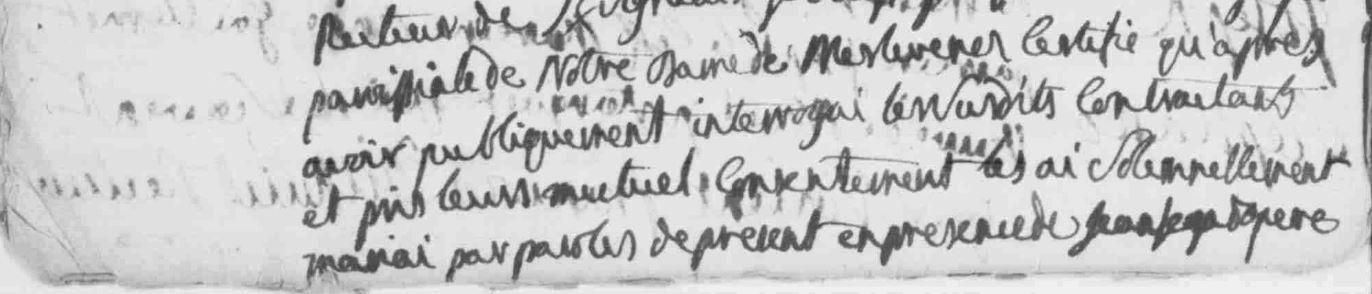 Recteur de
paroissiale de Notre dame de Merlevenez Certifie qu'apres
avoir publiquement interrogai les susdits Contractants
et pris leurs mutuel Consentement les ai Solemnellement
mariai par paroles de present en presence de Jean pere